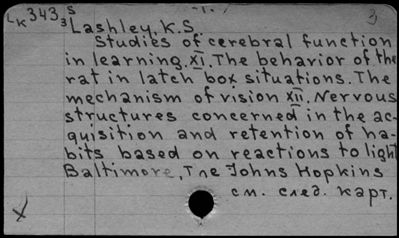 LK 343 S 3
3
Lashley, K.S.
Studies of cerebral function
in learning. XI. The behavior of the
rat in latch box situations. The
mechanism of vision XII. Nervous
structures concerned in the ac-
quisition and retention of ha-
bits based on reactions to light
Baltimore, The Johns Hopkins
см. след. карт.